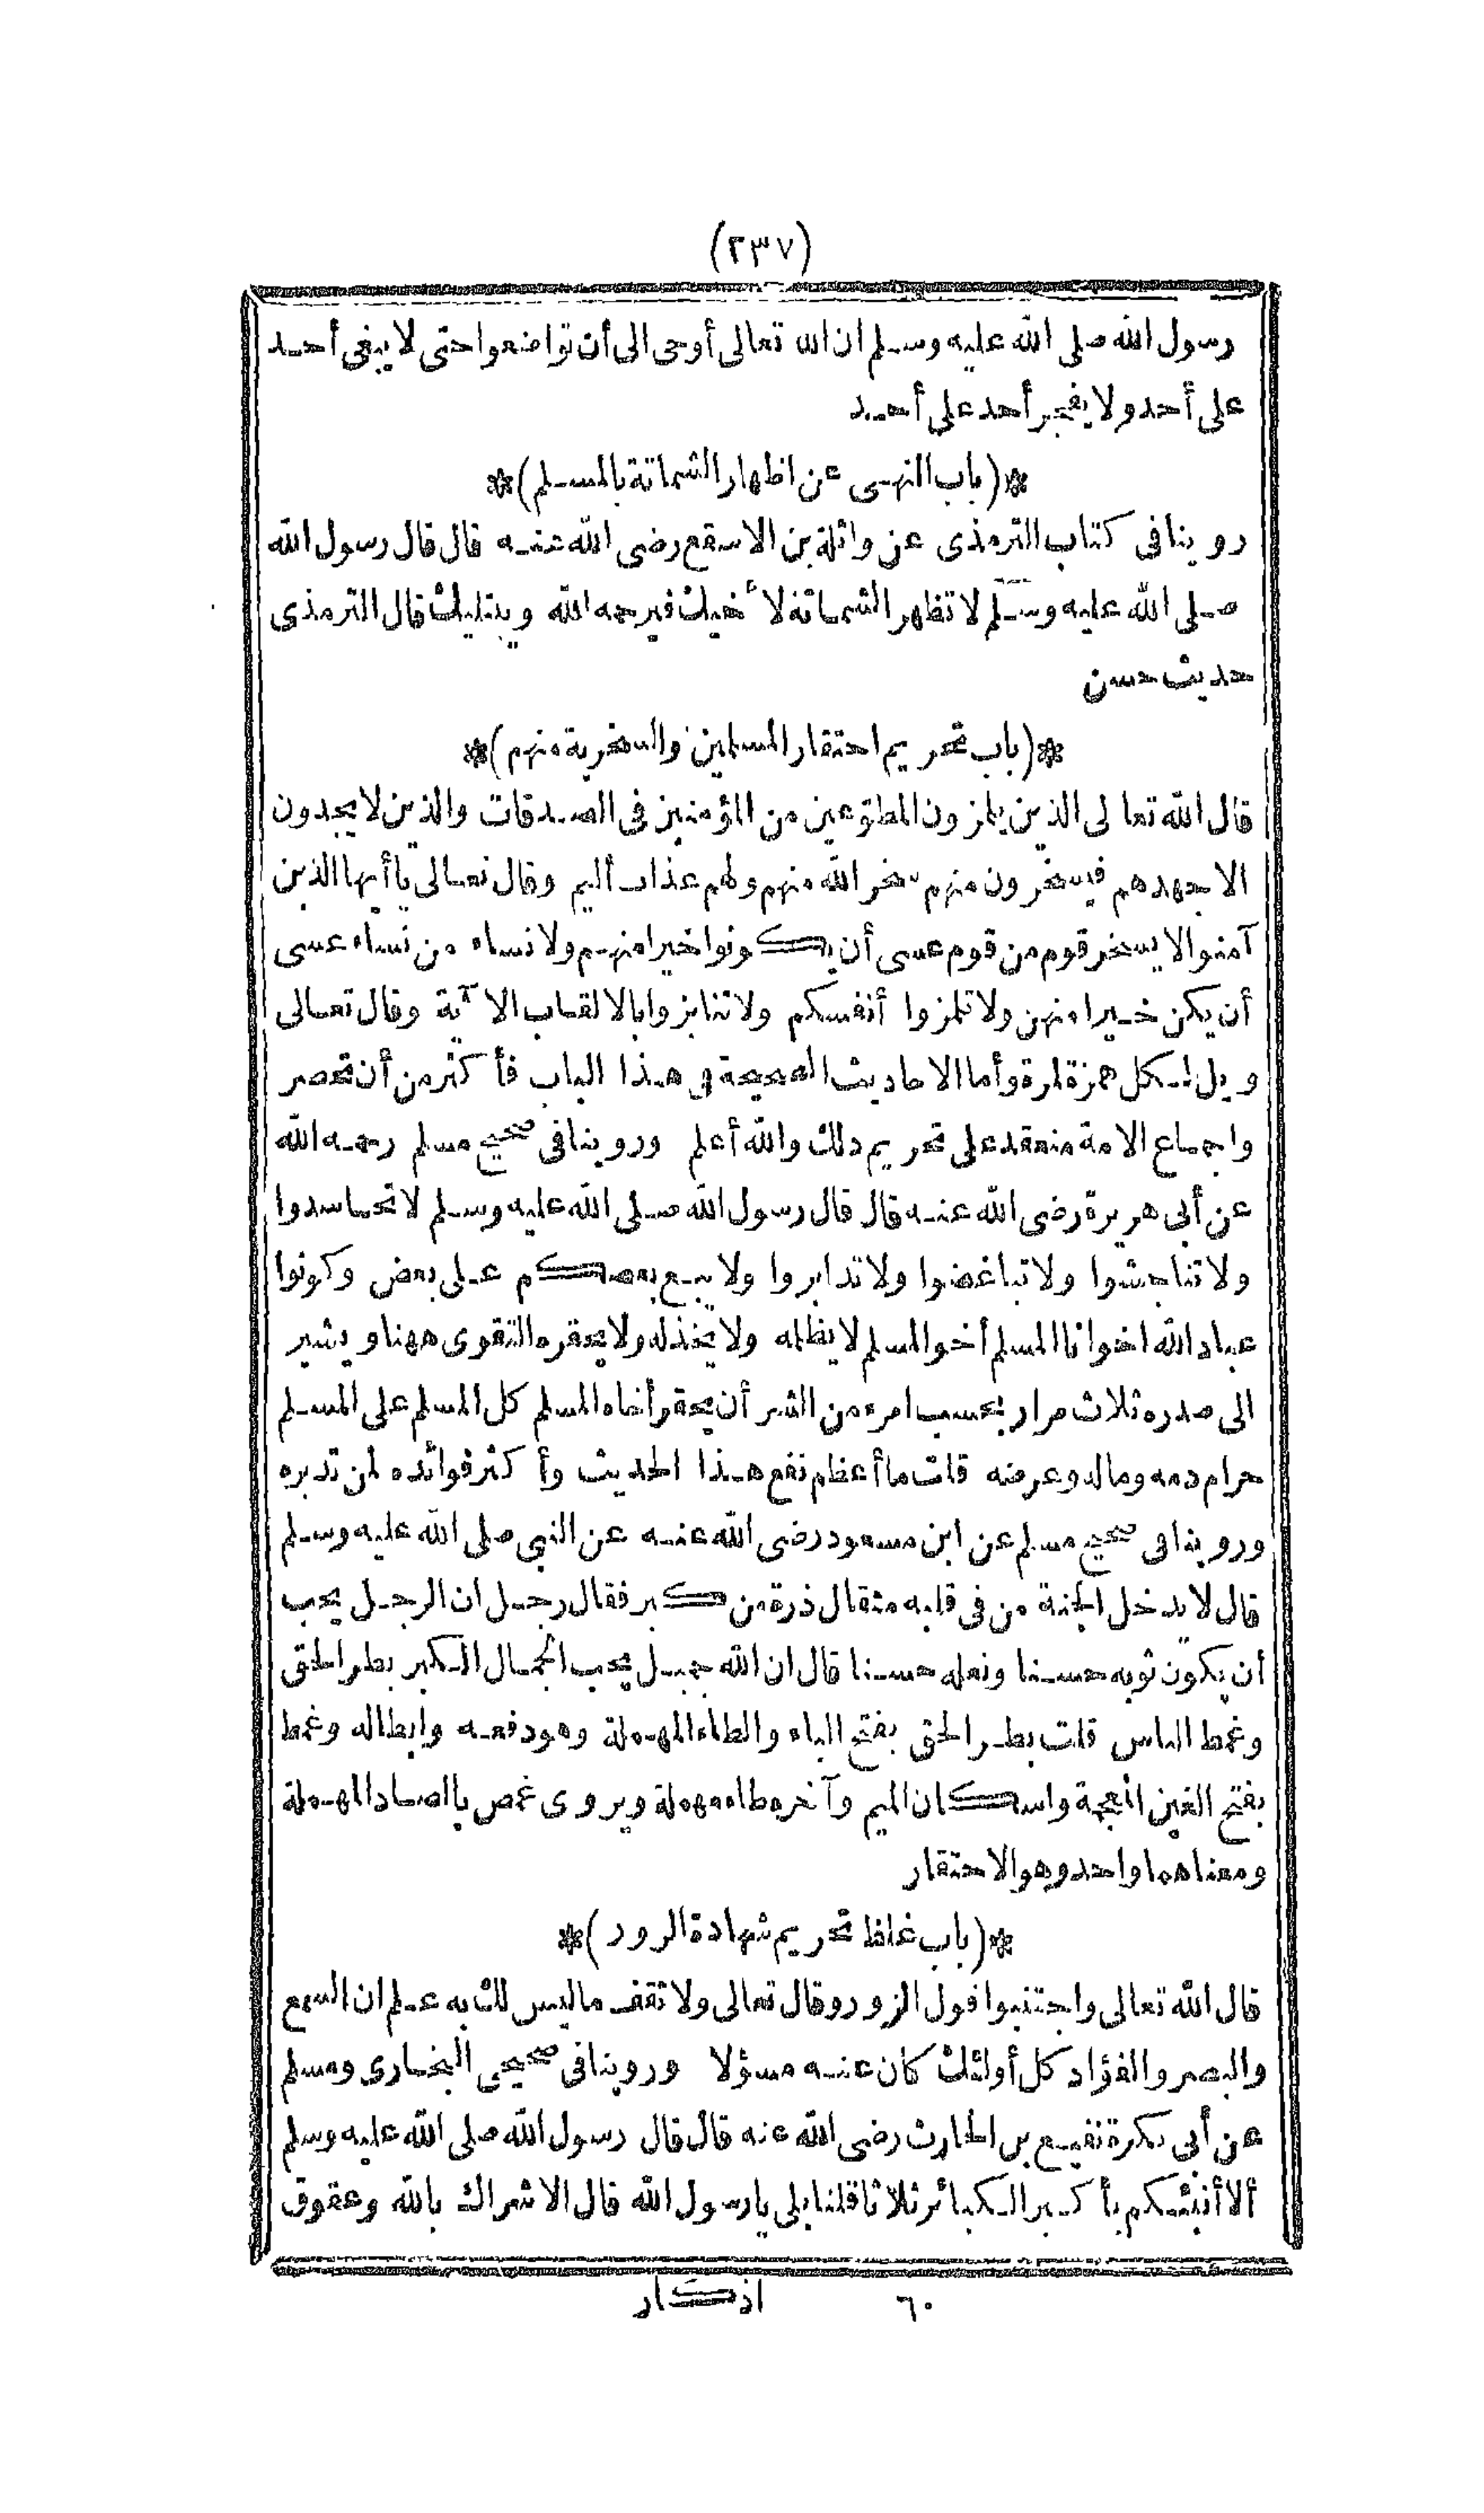 (٢٣٧)
رسول الله صلى الله عليه وسلم ان الله تعالى أوحى الى أن تواضعوا حتى لا يبغى أحد
على أحد ولا يفخر أحد على أحد
*(باب النهى عن اظهار الشماتة بالمسلم)*
روينا فى كتاب الترمذى عن واثلة بن الاسقع رضى الله عنه قال قال رسول الله
صلى الله عليه وسلم لا تظهر الشماتة لأخيك فيرحمه الله ويبتليك قال الترمذى
حديث حسن
*(باب تحريم احتقار المسلمين والسخرية منهم)*
قال الله تعالى الذين يلمزون المطوّعين من المؤمنين فى الصدقات والذين لا يجدون
الا جهدهم فيسخرون منهم سخر الله منهم ولهم عذاب أليم وقال تعالى يا أيها الذين
آمنوا لا يسخر قوم من قوم عسى أن يكونوا خيرا منهم ولا نساء من نساء عسى
أن يكن خيرا منهن ولا تلمزوا أنفسكم ولا تنابزوا بالالقاب الآية وقال تعالى
ويل لكل همزة لمزة وأما الاحاديث الصحيحة فى هذا الباب فأكثر من أن تحصر
واجماع الامة منعقد على تحريم ذلك والله أعلم وروينا فى صحيح مسلم رحمه الله
عن أبى هريرة رضى الله عنه قال قال رسول الله صلى الله عليه وسلم لا تحاسدوا
ولا تناجشوا ولا تباغضوا ولا تدابروا ولا يبع بعضكم على بعض وكونوا
عباد الله اخوانا المسلم أخو المسلم لا يظلمه ولا يخذله ولا يحقره التقوى ههنا ويشير
الى صدره ثلاث مرار بحسب امرء من الشر أن يحقر أخاه المسلم كل المسلم على المسلم
حرام دمه وماله وعرضه قلت ما أعظم نفع هذا الحديث وأكثر فوائده لمن تدبره
وروينا فى صحيح مسلم عن ابن مسعود رضى الله عنه عن النبى صلى الله عليه وسلم
قال لا يدخل الجنة من فى قلبه مثقال ذرة من كبر فقال رجل ان الرجل يحب
أن يكون ثوبه حسنا ونعله حسنا قال ان الله جميل يحب الجمال الكبر بطر الحق
وغمط الناس قلت بطر الحق بفتح الباء والطاء المهملة وهو دفعه وابطاله وغمط
بفتح الغين المعجمة واسكان الميم وآخره طاء مهملة ويروى غمص بالصاد المهملة
ومعناهما واحد وهو الاحتقار
*(باب غلظ تحريم شهادة الزور)*
قال الله تعالى واجتنبوا قول الزور وقال تعالى ولا تقف ما ليس لك به علم ان السمع
والبصر والفؤاد كل أولئك كان عنه مسؤلا وروينا فى صحيحى البخارى ومسلم
عن أبى بكرة نفيع بن الحارث رضى الله عنه قال قال رسول الله صلى الله عليه وسلم
ألا أنبئكم بأكبر الكبائر ثلاثا قلنا بلى يا رسول الله قال الاشراك بالله وعقوق
٦٠ اذكار